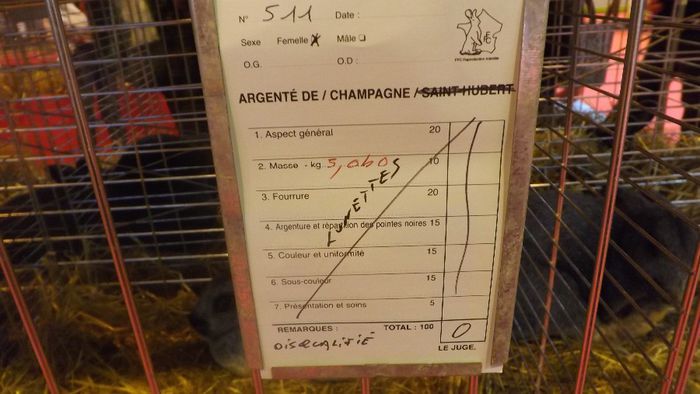 N° 511 Date :
Sexe Femelle Mâle
O.G. O.D :
ARGENTÉ DE / CHAMPAGNE / SAINT-HUBERT
1. Aspect général 20
2. Masse - kg. 5,060 10
LUNETTES
3. Fourrure 20
4. Argenture et répartition des pointes noires 15
5. Couleur et uniformité 15
6. Sous-couleur 15
7. Présentation et soins 5
REMARQUES : TOTAL : 100 0
DISQUALIFIÉ
LE JUGE.